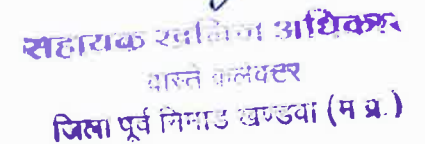 सहायक खनिज अधिकारी
वास्ते कलेक्टर
जिला पूर्व निमाड खण्डवा (म प्र.)